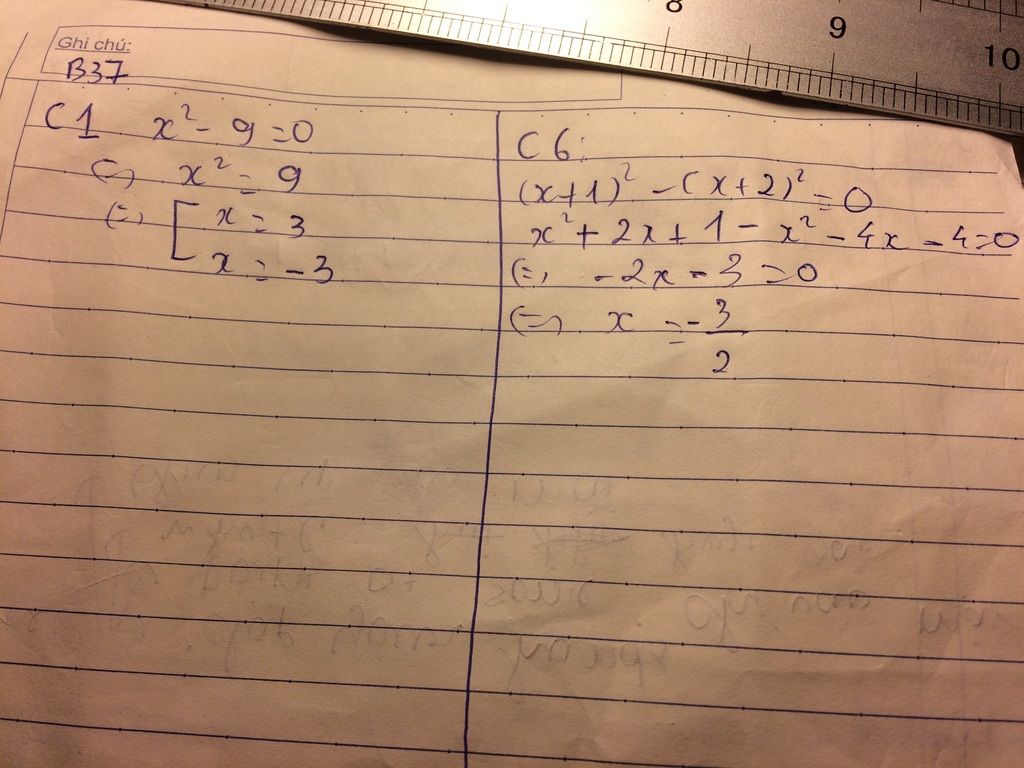 8
9
10
Ghi chú:
B37
C1 x² - 9 = 0
(=) x² = 9
(=) [ x = 3
x = -3
C6:
(x+1)² - (x+2)² = 0
x² + 2x + 1 - x² - 4x - 4 = 0
(=) -2x - 3 = 0
(=) x = -3/2